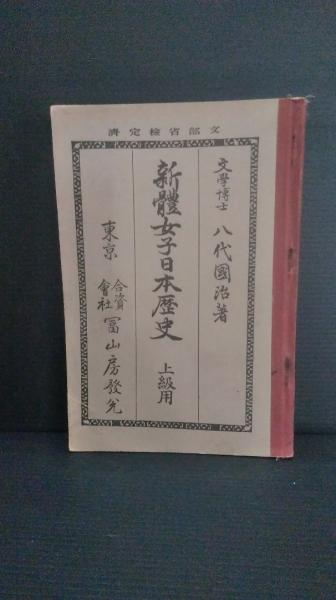 文部省檢定濟
文學博士 八代國治著
新體女子日本歴史 上級用
東京 合資會社 冨山房發兌